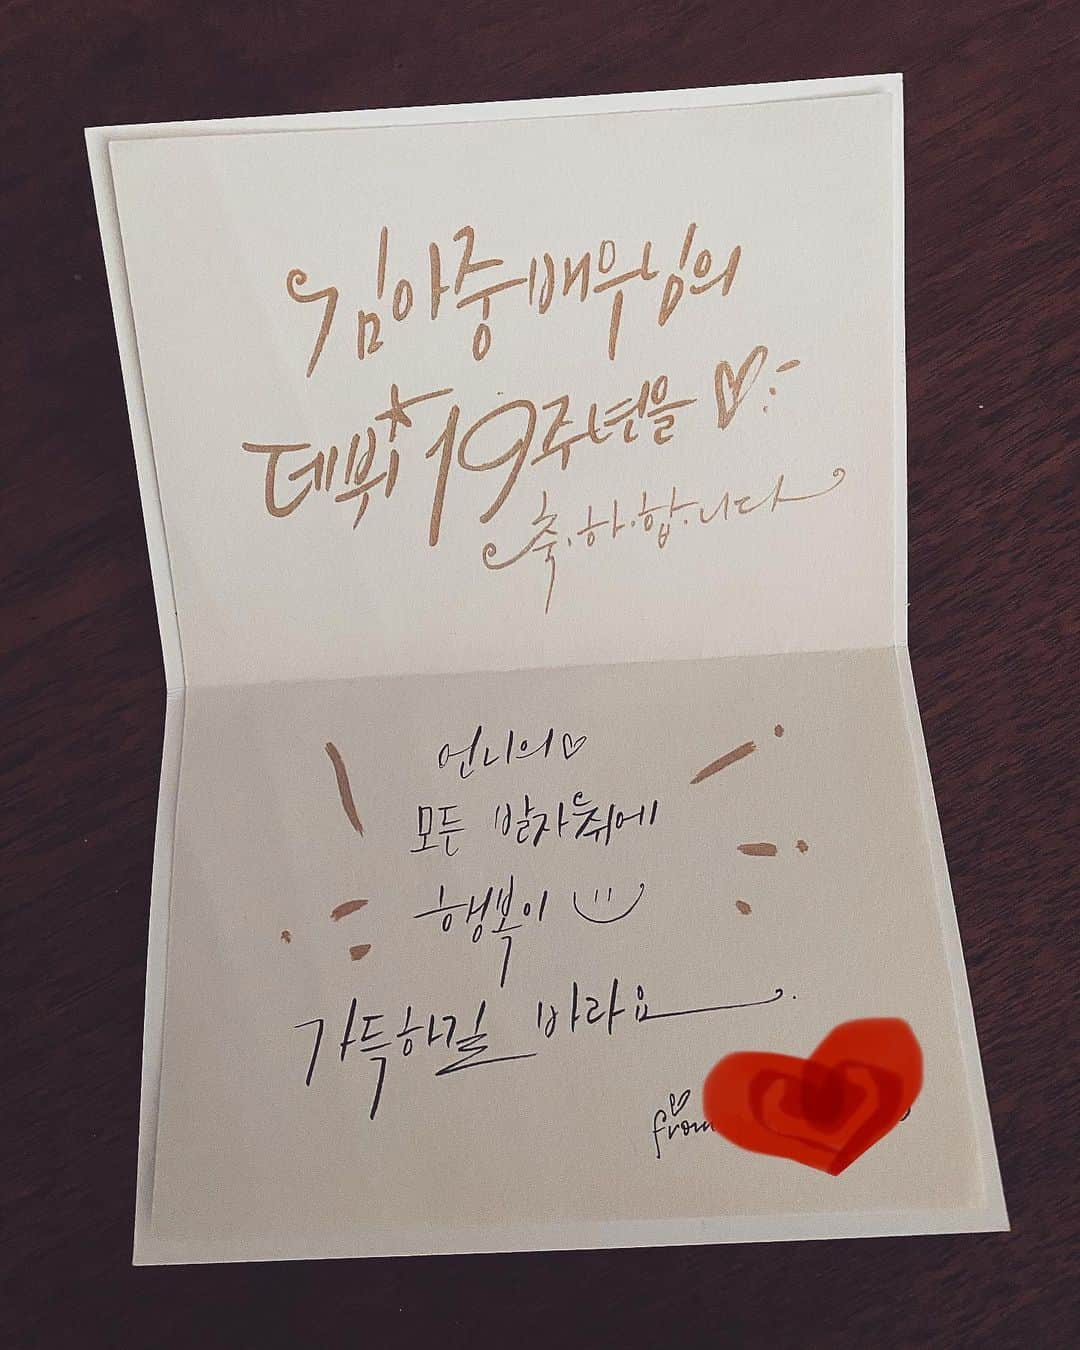 김아중 배우님의
데뷔 19주년을
축.하.합.니다
언니의
모든 발자취에
행복이
가득하길 바라요.
from